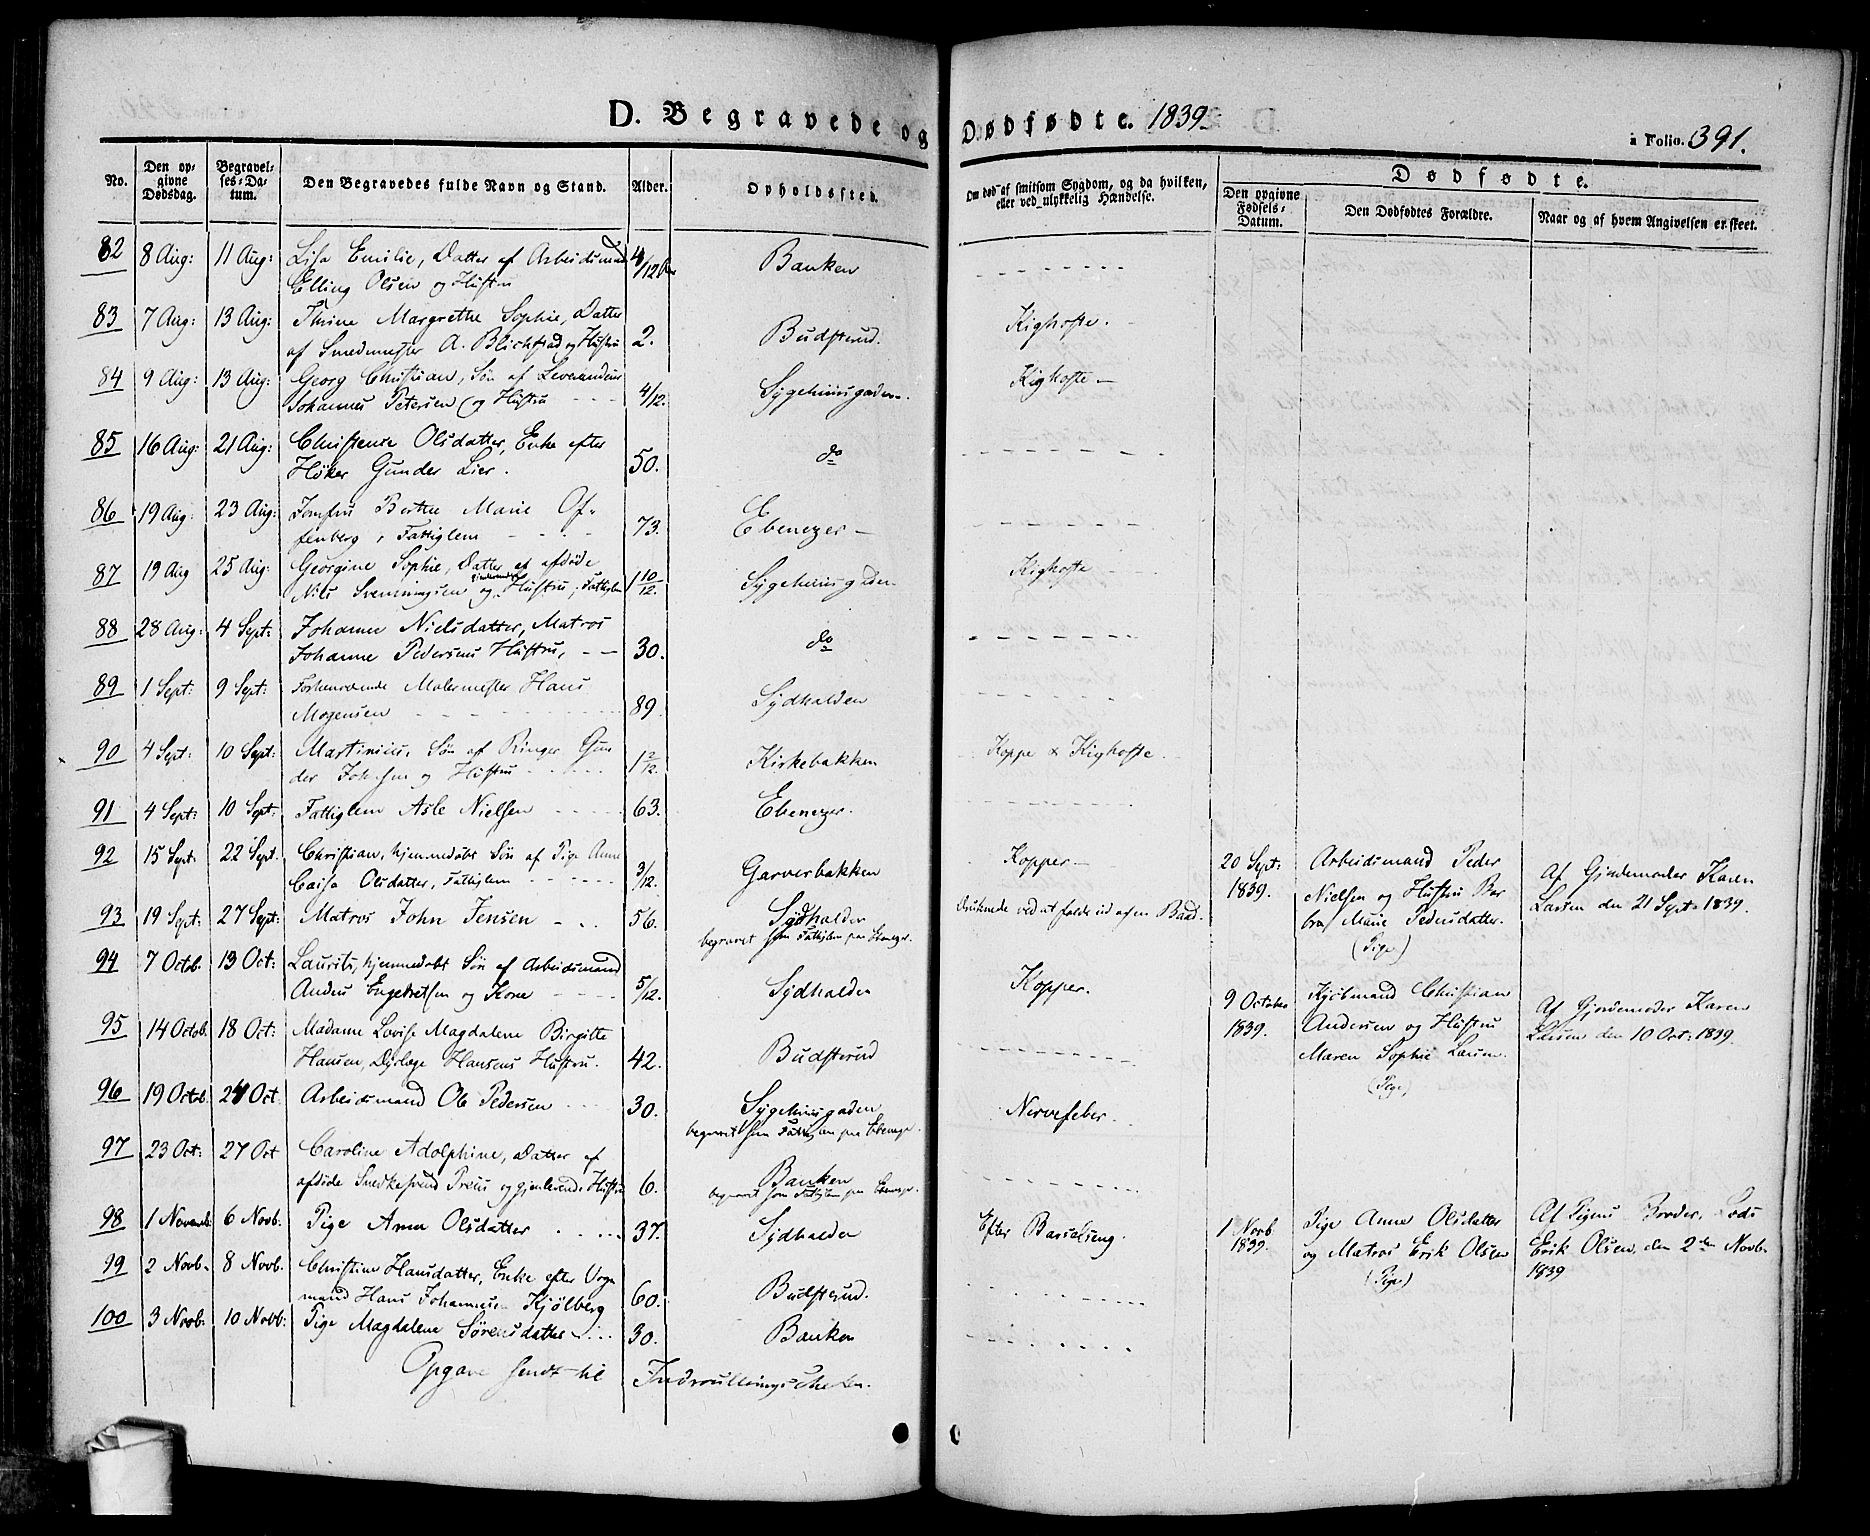 D. Begravede og Dødfødte. 1839.
a Folio. 391.
No. | Den opgivne Dødsdag. | Begravelses-Datum. | Den Begravedes fulde Navn og Stand. | Alder. | Opholdssted. | Om død af smitsom Sygdom, og da hvilken, eller ved ulykkelig Hændelse. | Dødfødte. | Den opgivne Fødsels-Datum. | Den Dødfødtes Forældre. | Naar og af hvem Angivelsen er skeet.
82 | 8 Aug: | 11 Aug: | Lisa Emilie, Datter af Arbeidsmand | 4/12 | Banken
Elling Olsen og Hustru
83 | 7 Aug: | 13 Aug: | Thrine Margrethe Sophie, Datter | 2. | Budsterud. | Kighoste.
af Smedmester A. Blichfad og Hustru
84 | 9 Aug: | 13 Aug: | Georg Christian, Søn af Leverandeur | 4/12. | Sygehuusgaden. | Kighoste
Johannes Petersen og Hustru
85 | 16 Aug: | 21 Aug: | Christense Olsdatter, Enke efter | 50. | do
Høker Gunder Lier.
86 | 19 Aug: | 23 Aug: | Jomfru Berthe Marie Of-
fenberg, Fattiglem | 73. | Ebenezer
87 | 19 Aug | 25 Aug: | Georgine Sophie, Datter af afdøde | 1 10/12. | Sygehuusgaden | Kighoste
Nils Svenningsen og gjenlevende Hustru, Fattiglem
88 | 28 Aug: | 4 Sept: | Johanne Nielsdatter, Matros | 30. | do
Johanne Pedersens Hustru,
89 | 1 Sept: | 9 Sept: | Forhenværende Malermester Hans | 89. | Sydhalden
Mogensen
90 | 4 Sept: | 10 Sept: | Martinius, Søn af Ringer Gun
der Johnsen og Hustru | 1 2/12. | Kirkebakken | Koppe & Kighoste.
91 | 4 Sept: | 10 Sept: | Fattiglem Asle Nielsen | 63. | Ebenezer.
92 | 15 Sept: | 22 Sept. | Christian, hjemmedøbt Søn af Pige Anne | 3/12. | Garverbakken | Kopper. | 20 Sept: 1839. | Arbeidsmand Peder | Af Gjordemoder Karen
Caisa Olsdatter, Fattiglem | Nielsen og Hustru Bar | Larsen den 21 Sept. 1839.
93 | 19 Sept: | 27 Sept: | Matros John Jensen | 56. | Sydhalden | Druknede ved at falde ud af en Baad. | bra Marie Pedersdatter.
begravet som Fattiglem paa Ebenezer. | (Pige)
94 | 7 Octob. | 13 Oct: | Laurits, hjemmedøbt Søn af Arbeidsmand | 5/12. | Sydhalden | Kopper. | 9 October 1839. | Kjøbmand Christian | Af Gjordemoder Karen
Anders Engebretsen og Kone | Andersen og Hustru | Larsen den 10 Oct: 1839.
95 | 14 Octob. | 18 Oct: | Madame Lovise Magdalene Birgitte | 42. | Budsterud | Maren Sophie Larsen.
Hansen, Dyrlæge Hansens Hustru. | (Pige)
96 | 19 Octob. | 24 Oct. | Arbeidsmand Ole Pedersen | 30. | Sygehuusgaden | Nervefeber.
begravet som Fattiglem paa Ebenezer.
97 | 23 Oct: | 27 Oct | Caroline Adolphine, Datter af | 6. | Banken
afdøde Snedkersvend Preus og gjenlevende Hustru | begravet som Fattiglem paa Ebenezer.
98 | 1 Novemb: | 6 Novb. | Pige Anne Olsdatter | 37. | Sydhalden | Efter Barselseng. | 1 Novb 1839. | Pige Anne Olsdatter | Af Pigens Broder, Lods
og Matros Erik Olsen | Erik Olsen, den 2den Novb.
(Pige) | 1839
99 | 2 Novb. | 8 Novb. | Christine Hansdatter, Enke efter Vogn
mand Hans Johannesen Kjølberg | 60. | Budsterud.
100 | 3 Novb. | 10 Novb: | Pige Magdalene Sørensdatter | 30. | Banken
Opgave sendt til Indroulleringschefen.